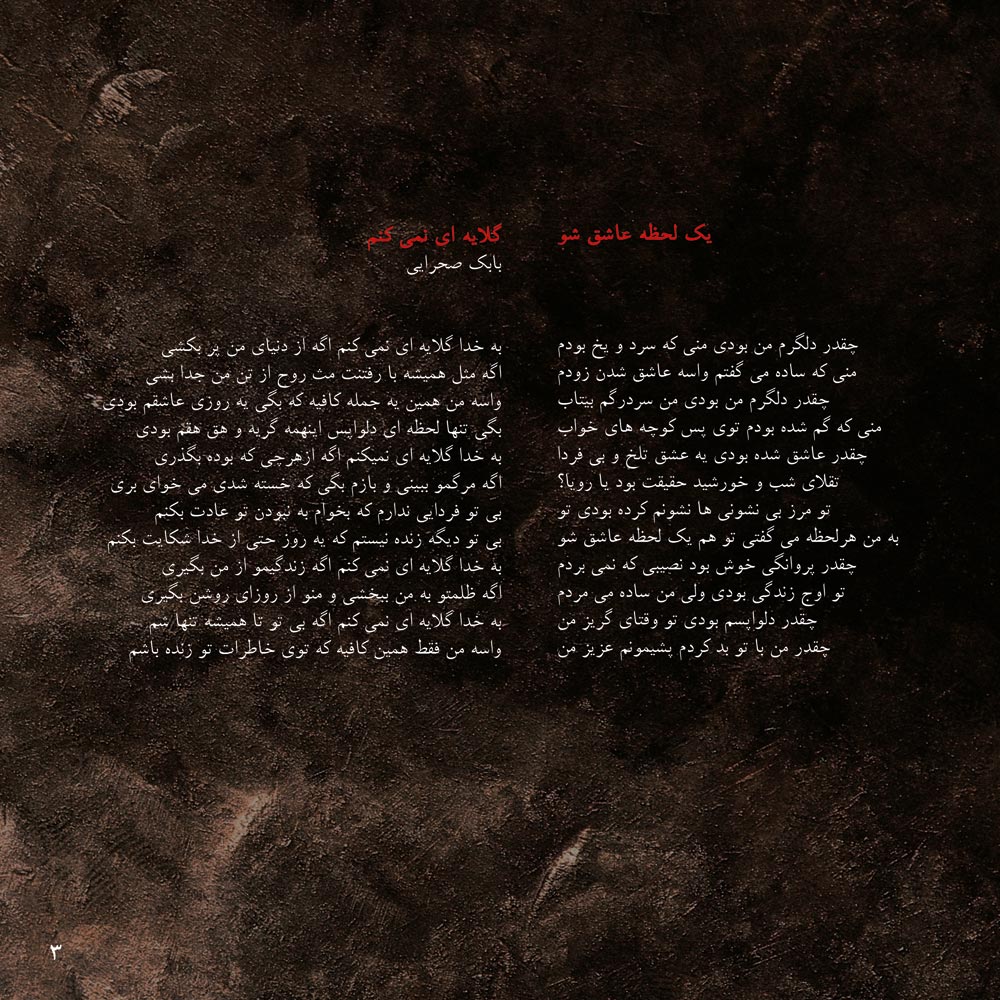 یک لحظه عاشق شو
چقدر دلگرم من بودی منی که سرد و یخ بودم
منی که ساده می گفتم واسه عاشق شدن زودم
چقدر دلگرم من بودی من سردرگم بیتاب
منی که گم شده بودم توی پس کوچه های خواب
چقدر عاشق شده بودی یه عشق تلخ و بی فردا
تقلای شب و خورشید حقیقت بود یا رویا؟
تو مرز بی نشونی ها نشونم کرده بودی تو
به من هرلحظه می گفتی تو هم یک لحظه عاشق شو
چقدر پروانگی خوش بود نصیبی که نمی بردم
تو اوج زندگی بودی ولی من ساده می مردم
چقدر دلواپسم بودی تو وقتای گریز من
چقدر من با تو بد کردم پشیمونم عزیز من
گلایه ای نمی کنم
بابک صحرایی
به خدا گلایه ای نمی کنم اگه از دنیای من پر بکشی
اگه مثل همیشه با رفتنت مث روح از تن من جدا بشی
واسه من همین یه جمله کافیه که بگی یه روزی عاشقم بودی
بگی تنها لحظه ای دلواپس اینهمه گریه و هق هقم بودی
به خدا گلایه ای نمیکنم اگه ازهرچی که بوده بگذری
اگه مرگمو ببینی و بازم بگی که خسته شدی می خوای بری
بی تو فردایی ندارم که بخوام به نبودن تو عادت بکنم
بی تو دیگه زنده نیستم که یه روز حتی از خدا شکایت بکنم
به خدا گلایه ای نمی کنم اگه زندگیمو از من بگیری
اگه ظلمتو به من ببخشی و منو از روزای روشن بگیری
به خدا گلایه ای نمی کنم اگه بی تو تا همیشه تنها شم
واسه من فقط همین کافیه که توی خاطرات تو زنده باشم
۳